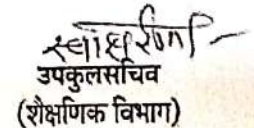 स्वाक्षरीत/-
उपकुलसचिव
(शैक्षणिक विभाग)